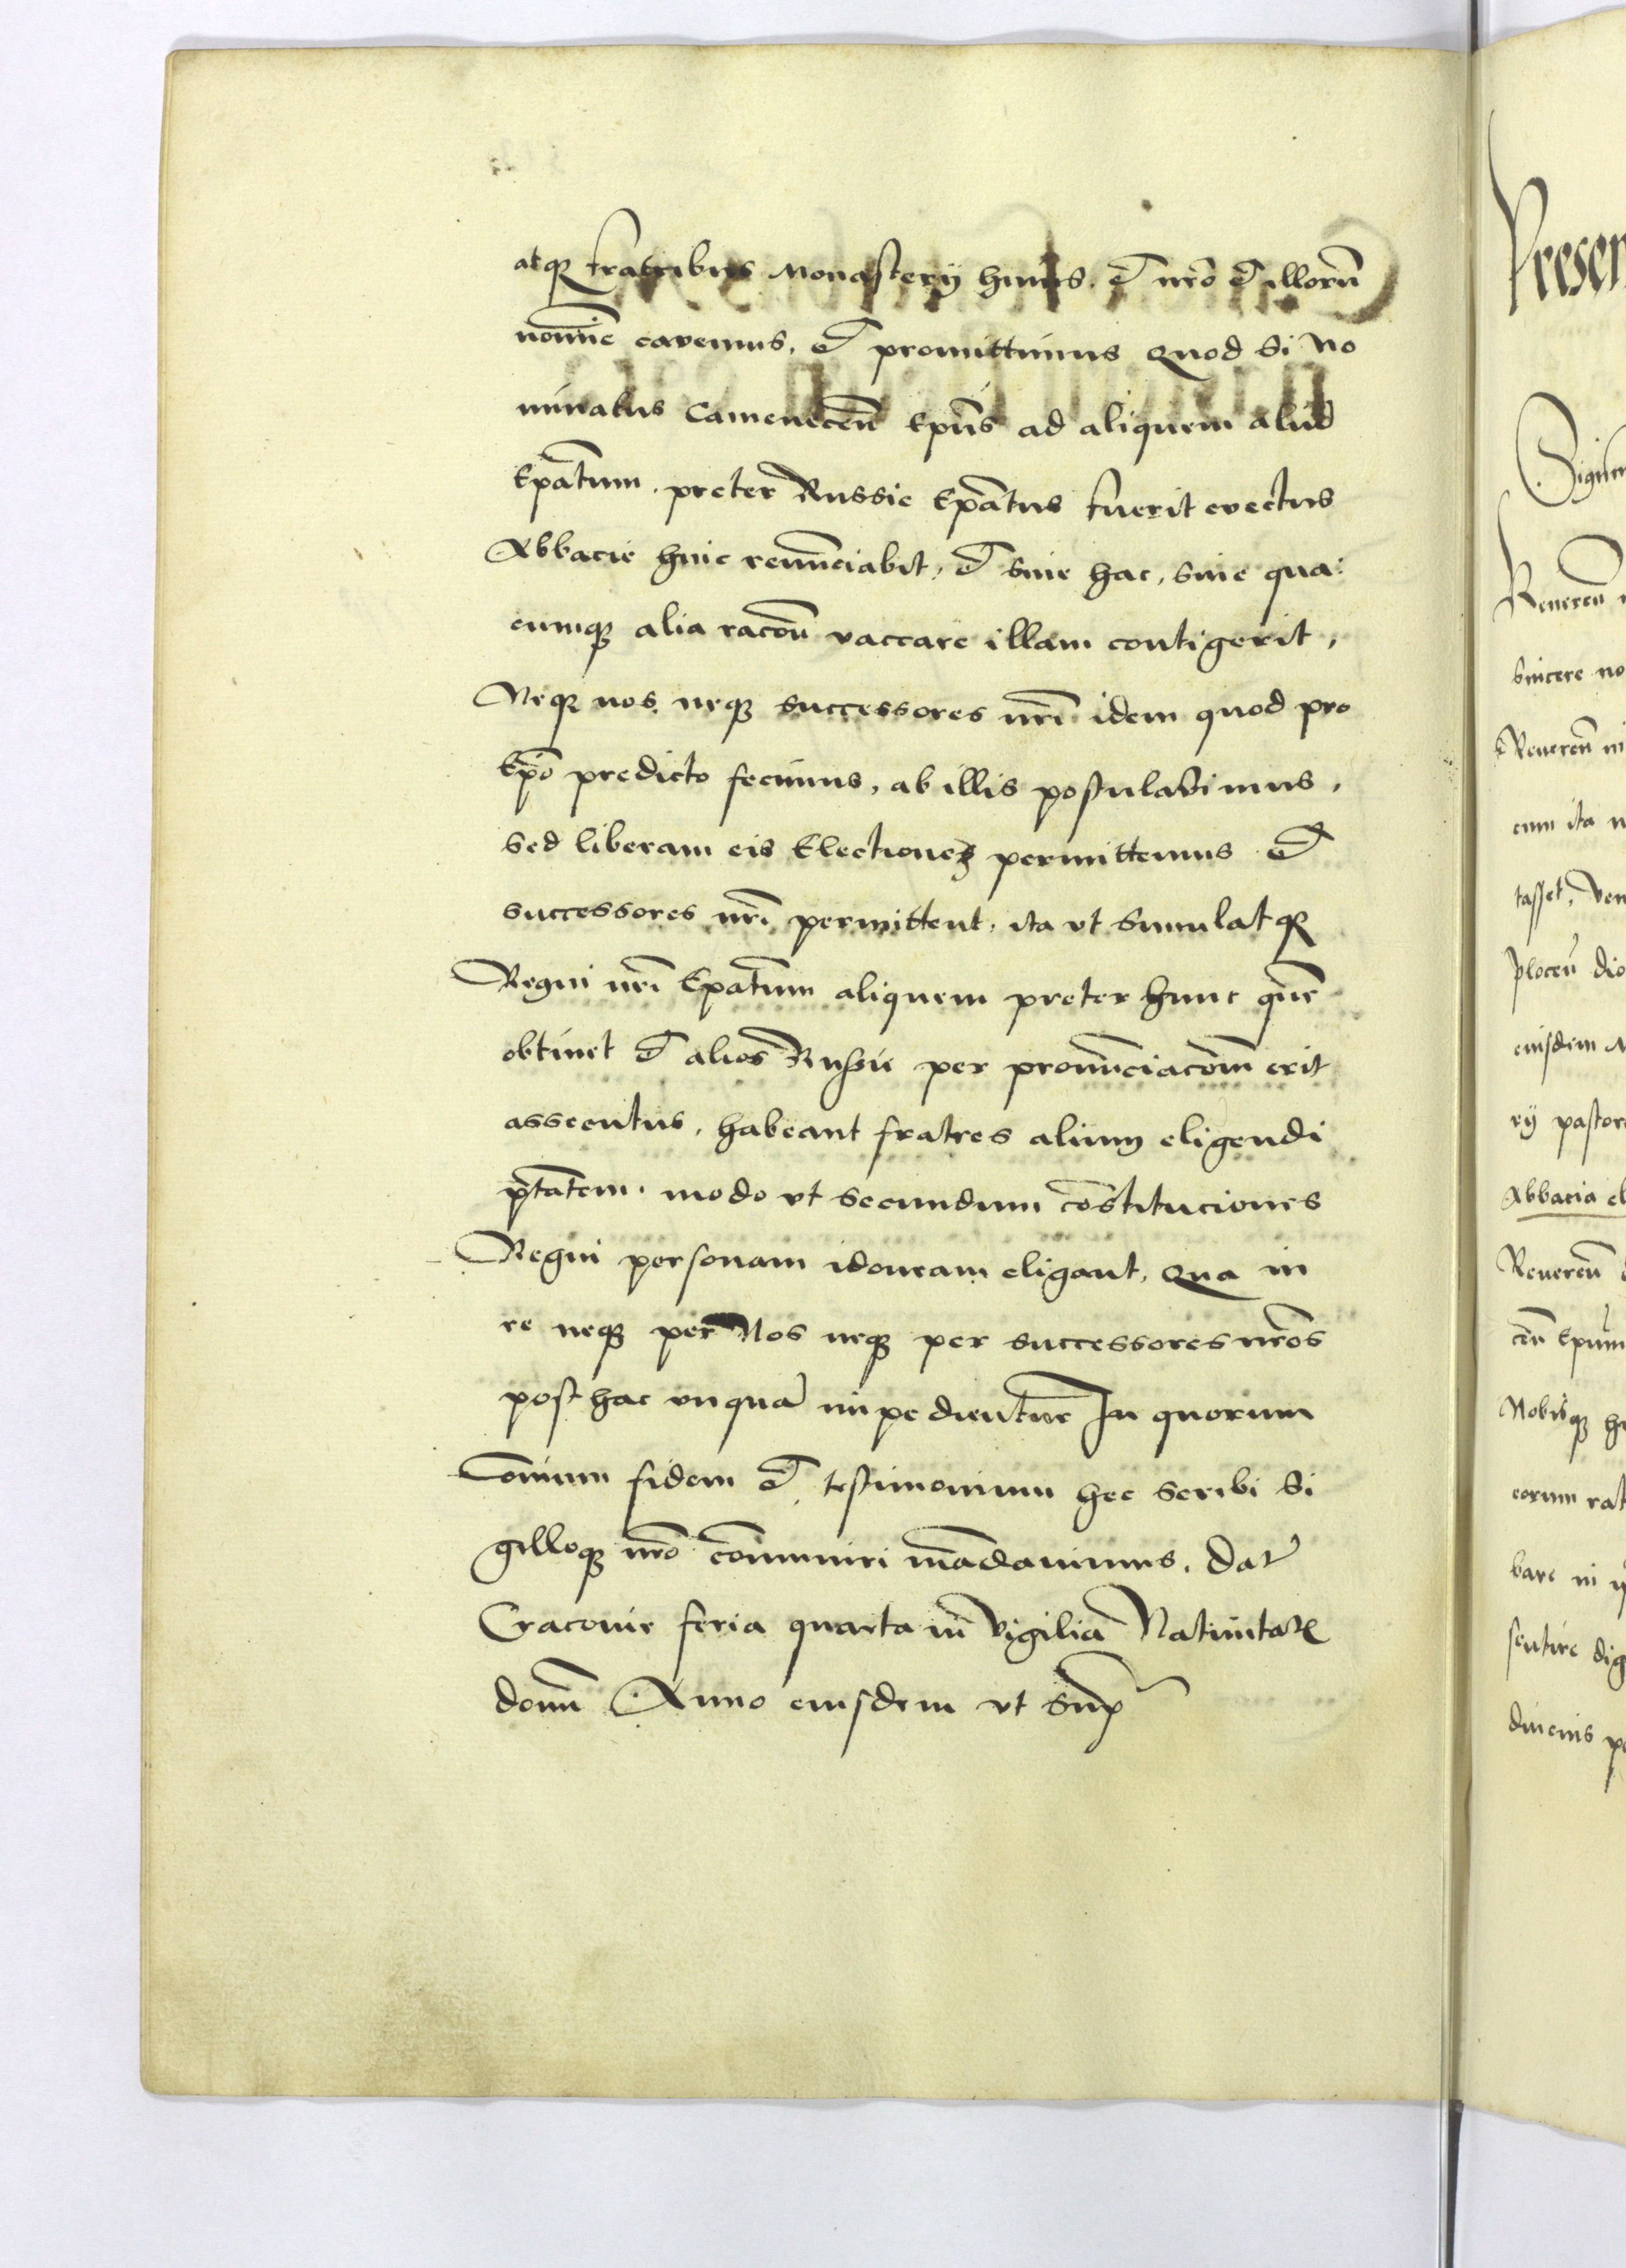 atq fratribus Monasterÿ huius. et nr̃o et illorũ
nomīe cavemus, et promittimus quod si no
minatus Camenecen̄ Ep̄us ad aliquem aliud
Ep̄atum. preter Russie Ep̄atus fuerit evectus
Abbacie huic renūnciabit, et sive hac, sive qua:
cumq alia racōn vaccare illam contigerit,
Neq nos neq successores nr̄i idem quod pro
Ep̄o predicto fecimus, ab illis postulabimus,
sed liberam eis Electionez permittemus et
successores nr̄i permittent, ita vt simulatq
Regni nr̄i Ep̄atum aliquem preter hunc quē
obtinet et alios Russie per pronūnciacōnm erit
assecutus, habeant fratres alium eligendi
p̄tātem. modo vt secundum cōstituciones
Regni personam idoneam eligant, qua in
re neq per Nos neq per successores nr̄os
post hac vnquā impedientur In quorum
Om̄ium fidem et testimonium hec scribi si
gilloq nr̄o cōmmuniri mādavimus. Dat
Cracovie feria quarta in vigiliā Nativitatis
domī Anno eiusdem vt sup
Presen
Reveren̄
sincere no
Reveren̄
cum ita
tasset, Ven
plocen̄ dio
eiusdem
rÿ pastor
Abbatia el
Reveren̄
cen̄ Epum
Nobisq
eorum rat
bare in
sentire dig